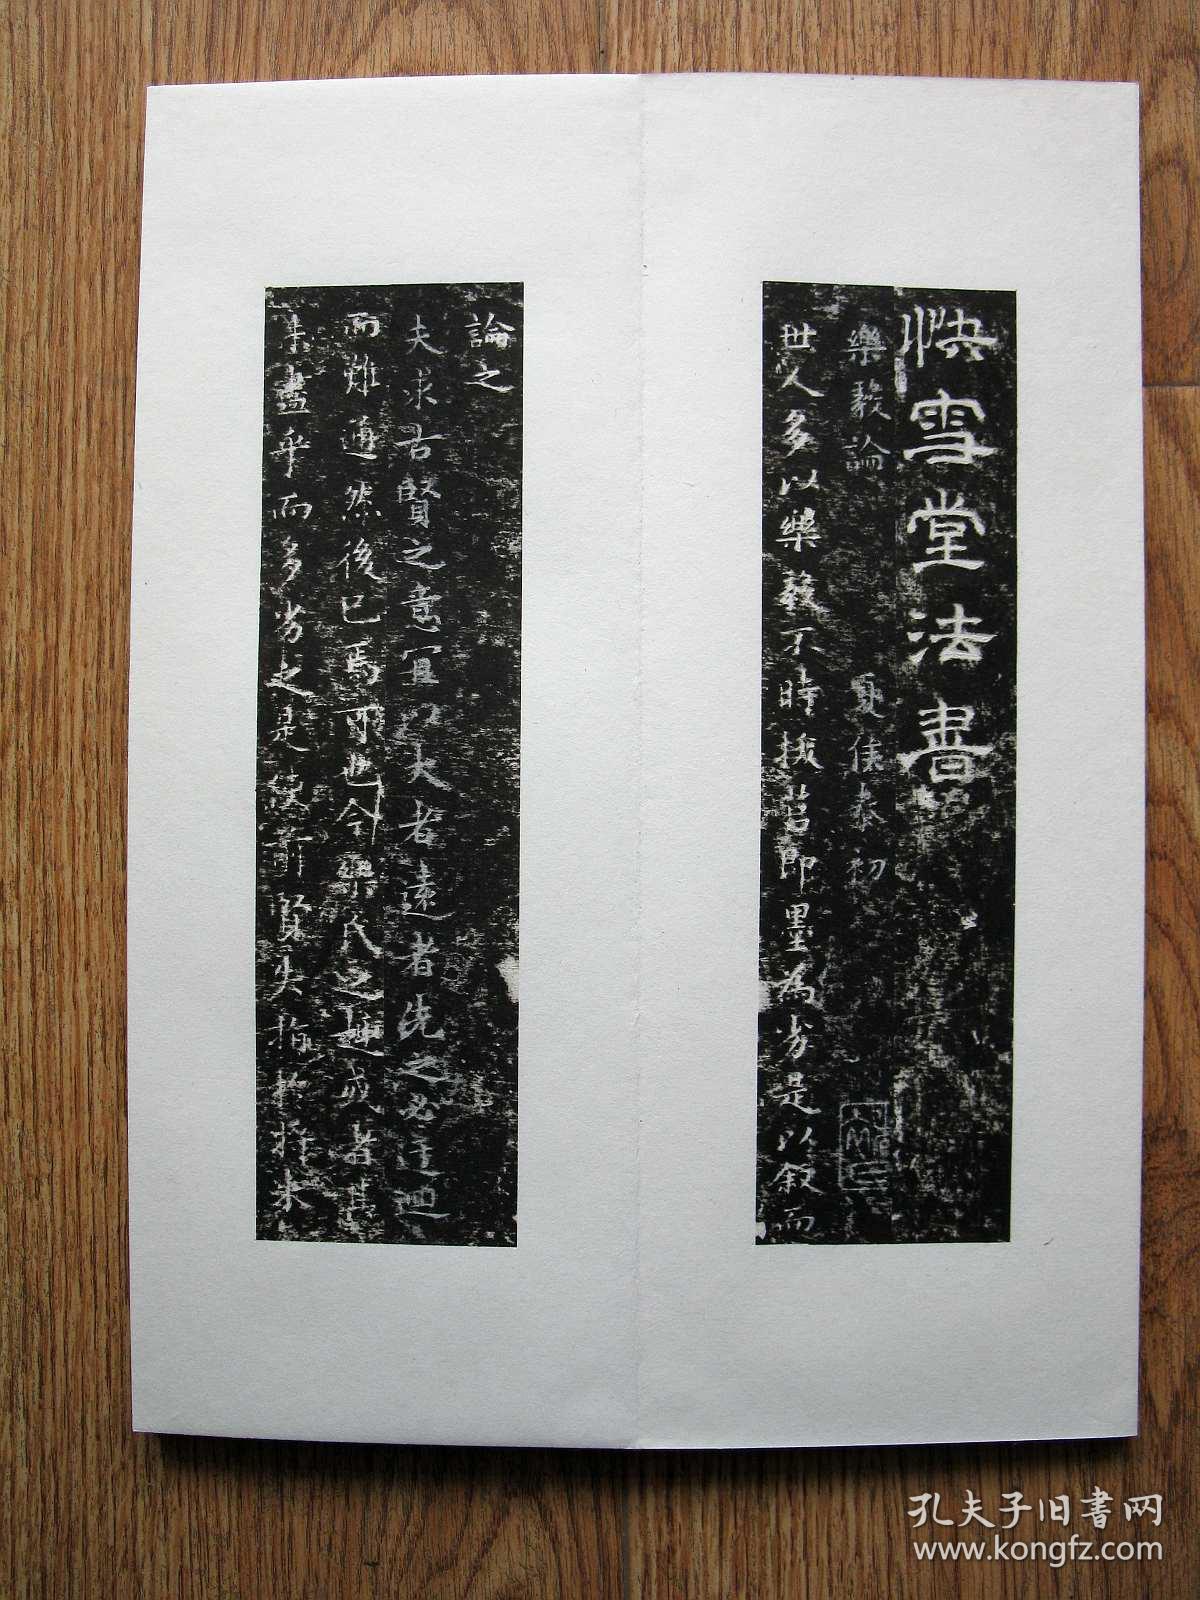 快雪堂法書
樂毅論 夏侯泰初
世人多以樂毅不時拔莒即墨為劣是以叙而
論之
夫求古賢之意宜以大者遠者先之必迂迴
而難通然後已焉可也今樂氏之趣或者其
未盡乎而多劣之是使前賢失指於將来
孔夫子旧書网
www.kongfz.com